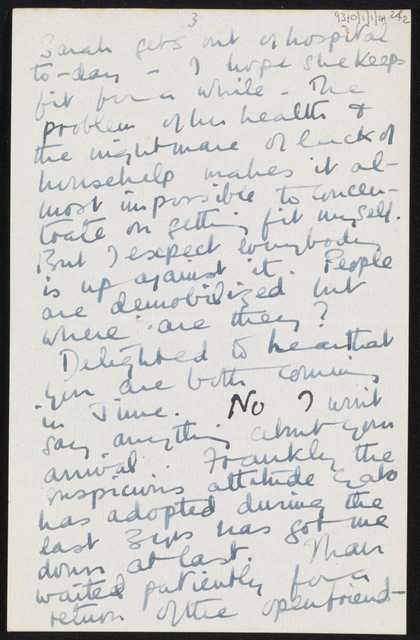 3
Sarah gets out of hospital
to-day - I hope she keeps
fit for a while - The
problem of her health &
the nightmare of lack of
househelp makes it al-
most impossible to concen-
trate on getting fit myself.
But I expect everybody
is up against it. People
are demobilized but
where are they?
Delighted to hear that
you are both coming
in June. No I won't
say anything about your
arrival. Frankly the
suspicious attitude
has adopted during the
last 3 yrs has got me
down at last. I have
waited patiently for a
return of the open friend-